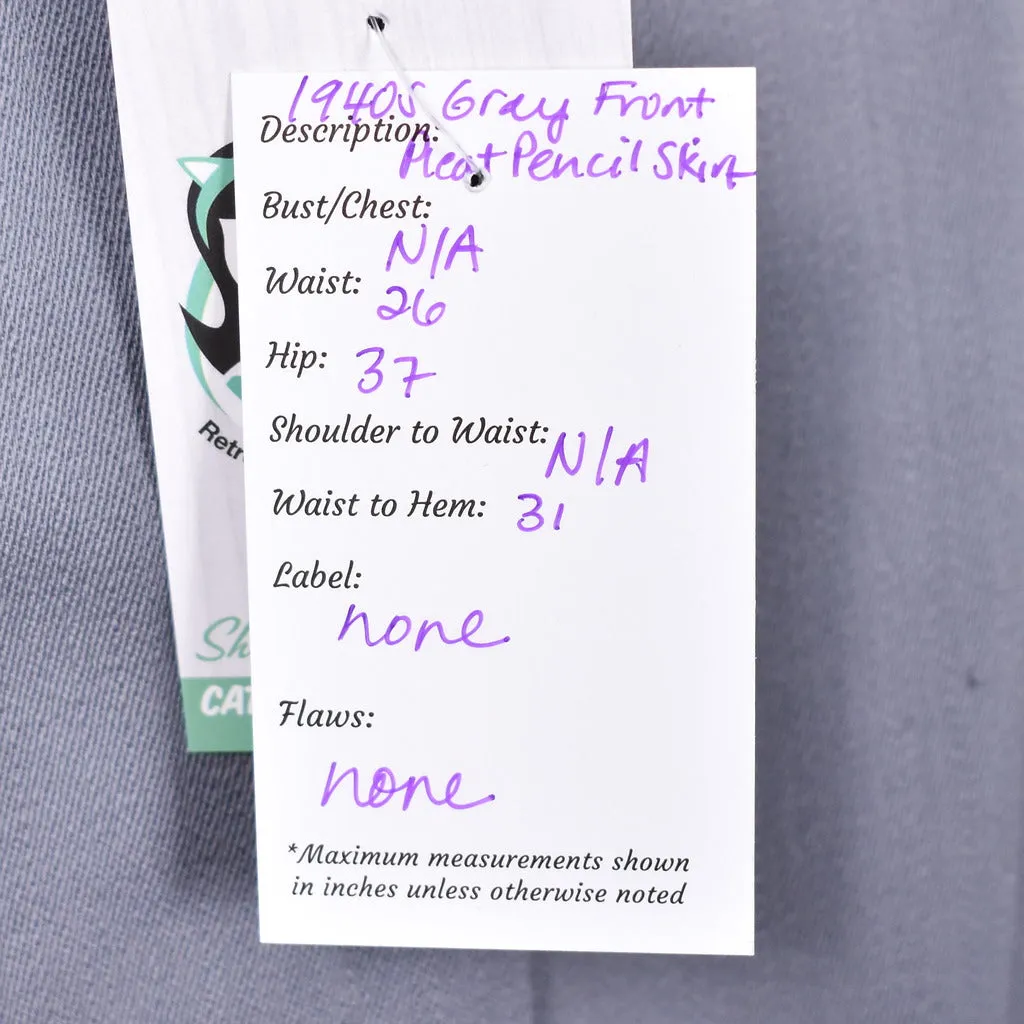 1940s Gray Front
Description:
Pleat Pencil Skirt
Bust/Chest:
N/A
Waist:
26
Hip: 37
Retr
Shoulder to Waist: N/A
Waist to Hem: 31
Label:
none
Sh
CAT
Flaws:
none
*Maximum measurements shown
in inches unless otherwise noted